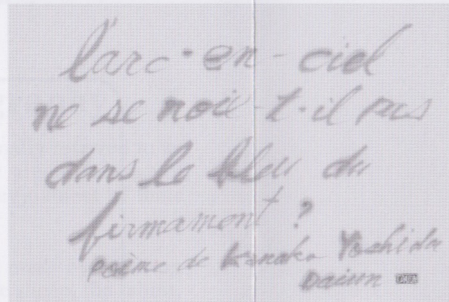 l'arc-en-ciel
ne se noie-t-il pas
dans le bleu du
firmament ?
Poème de Kanako Yoshida